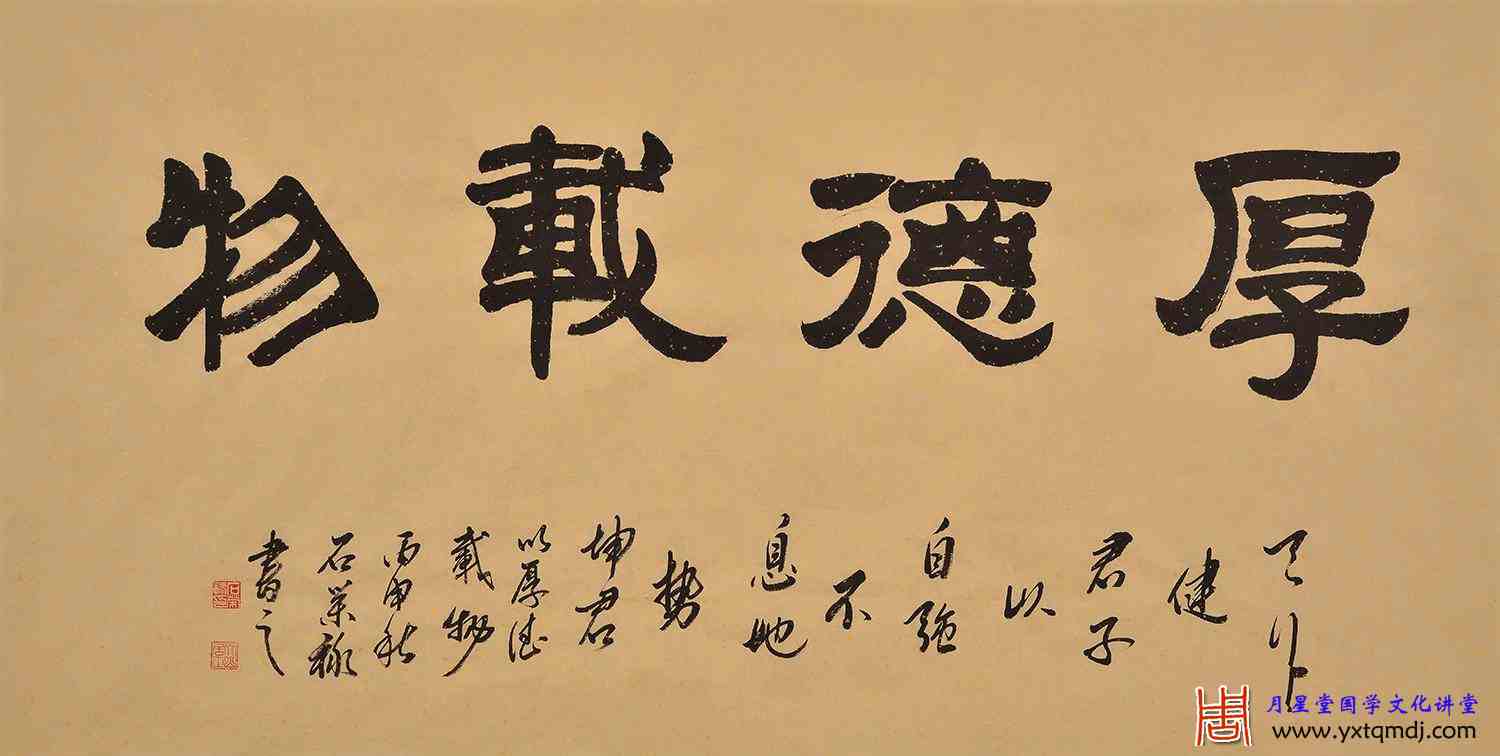 厚德載物
天行
健
君子
以
自强
不
息地
势
坤君
以厚德
載物
丙申秋
石
書之
月星堂国学文化讲堂
www.yxtqmdj.com